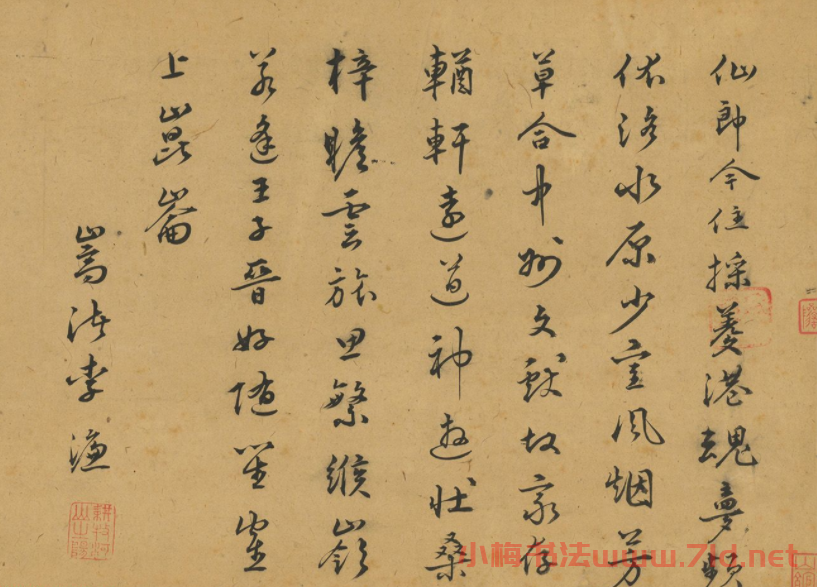 仙郎今住採菱港魂夢頻
依洛水原少室風烟芳
草合中州文獻故家存
輶軒遠道神遊壯桑
梓瞻雲旅思繁緱嶺
若逢王子晉好隨笙
上崑崙
嵩渚李濂
小梅书法www.7ld.net